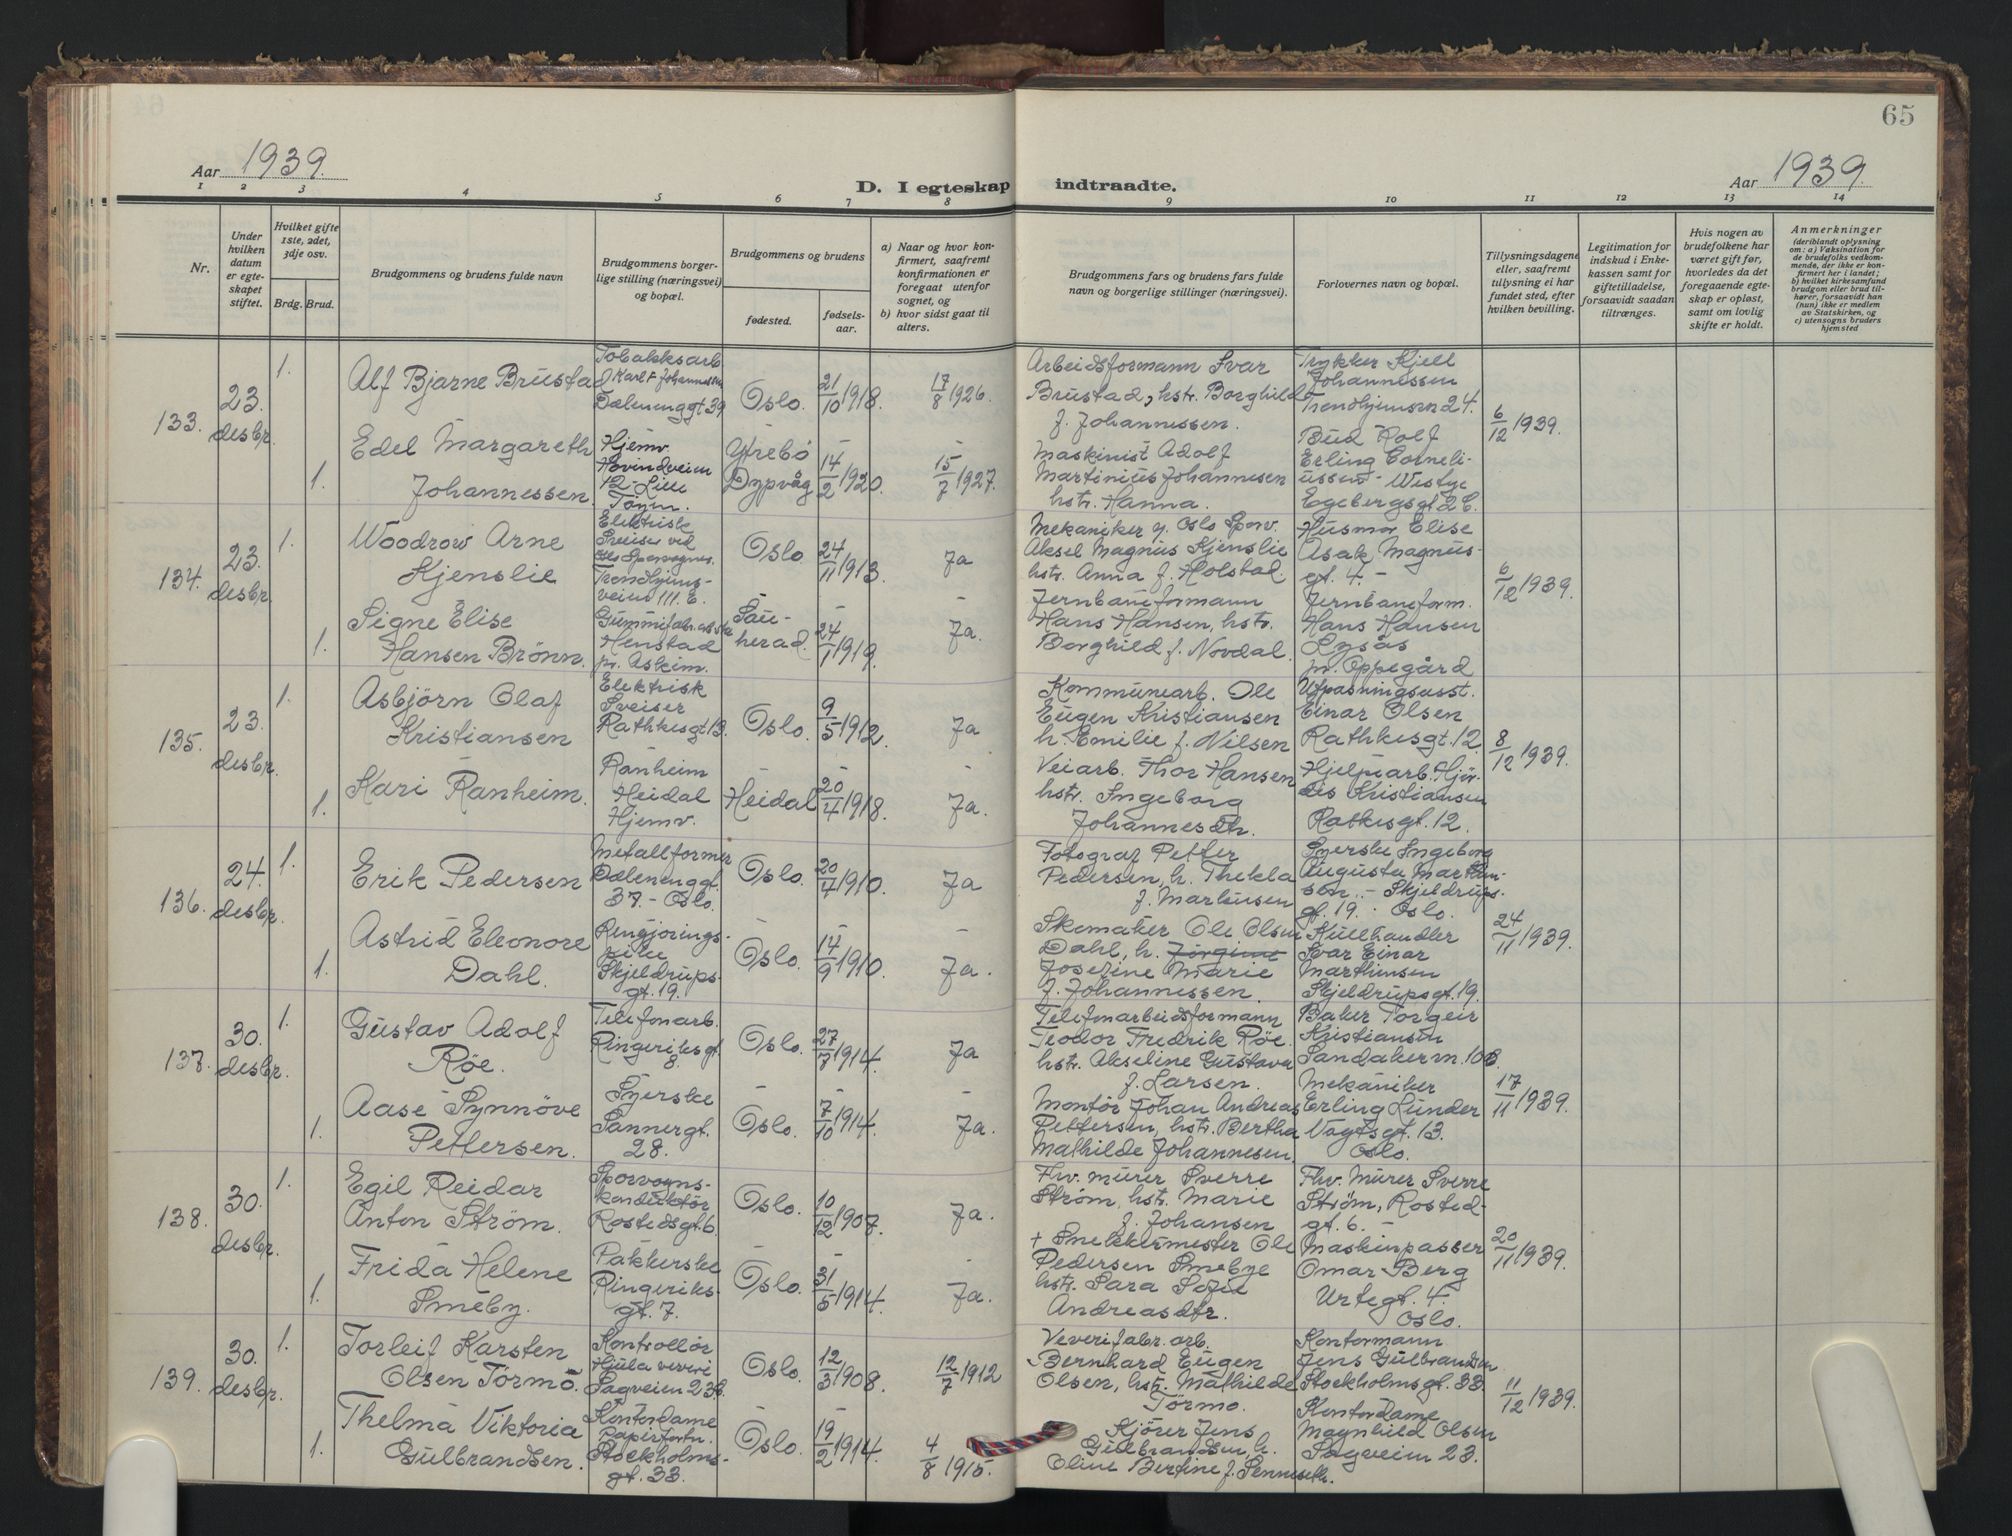 65
Aar 1939.
D. I egteskap indtraadte.
Aar 1939
1 2 3 4 5 6 7 8 9 10 11 12 13 14
Nr.
Under
hvilken
datum
er egte-
skapet
stiftet.
Hvilket gifte
1ste, 2det,
3dje osv.
Brdg. Brud.
Brudgommens og brudens fulde navn
Brudgommens borger-
lige stilling (næringsvei)
og bopæl.
Brudgommens og brudens
fødested.
fødsels-
aar.
a) Naar og hvor kon-
firmert, saafremt
konfirmationen er
foregaat utenfor
sognet, og
b) hvor sidst gaat til
alters.
Brudgommens fars og brudens fars fulde
navn og borgerlige stillinger (næringsvei).
Forlovernes navn og bopæl.
Tillysningsdagene
eller, saafremt
tillysning ei har
fundet sted, efter
hvilken bevilling.
Legitimation for
indskud i Enke-
kassen samt for
giftetilladelse,
forsaavidt saadan
tiltrænges.
Hvis nogen av
brudefolkene har
været gift før,
hvorledes da det
foregaaende egte-
skap er opløst,
samt om lovlig
skifte er holdt.
Anmerkninger
(deriblandt oplysning
om: a) Vaksination for
de brudefolks vedkom-
mende, der ikke er kon-
firmert her i landet;
b) hvilket kirkesamfund
brudgom eller brud til-
hører, forsaavidt han
(hun) ikke er medlem
av Statskirken, og
c) utensogns bruders
hjemsted
133.
23.
desbr.
1.
Alf Bjarne Brustad
Tobakksarb
Karl F Johannessen
Dælenenggt 39
Oslo.
21/10 1918.
17/8 1926.
Arbeidsformann Ivar
Brustad, hstr. Borghild
f. Johannessen.
Trykker Kjell
Johannessen
Trondhjemsvn 24.
6/12 1939.
1.
Edel Margareth
Johannessen.
Hjemv.
Hovindveien
12 - Lille
Tøyen.
Ytrebö
Dypvåg
14/2 1920.
15/7 1927.
Maskinist Adolf
Martinius Johannessen
hstr. Hanna.
Bud Rolf
Erling Corneli-
ussen - Westye
Egebergsgt 2 C.
134.
23.
desbr.
1.
Woodrow Arne
Kjenslie
Elektriske
Sveiser ved
Oslo Sporvogner.
Trondhjems-
veien 111. E.
Oslo
24/11 1913.
Ja
Mekaniker v. Oslo Sporv.
Aksel Magnus Kjenslie
hstr. Anna f. Holstad.
Husmor Elise
Asak Magnus-
gt. 4. -
6/12 1939.
1.
Signe Elise
Hansen Brönn.
Gummifabr. arbske
Henstad
pr. Askim.
Sau-
herad.
24/1 1919.
Ja.
Jernbaneformann
Hans Hansen, hstr.
Borghild f. Nordal.
Jernbaneform.
Hans Hansen
Lysås
pr. Oppegård
135.
23.
desbr.
1.
Asbjörn Olaf
Kristiansen
Elektrisk
Sveiser
Rathkesgt 13.
Oslo.
9/5 1912.
Ja
Kommunearb. Ole
Eugen Kristiansen
h. Emilie f. Nilsen
Utpasningsasst.
Einar Olsen
Rathkesgt. 12.
8/12 1939.
1.
Kari Ranheim.
Ranheim
Heidal
Hjemv.
Heidal
20/4 1918.
Ja.
Veiarb. Thor Hansen
hstr. Ingeborg
Johannesdtr.
Hjelpearb. Hjör-
dis Kristiansen
Ratkesgt. 12.
136.
24.
desbr.
1.
Erik Pedersen
Metallformer
Dælenenggt.
37. - Oslo.
Oslo.
20/4 1910.
Ja
Fotograf Petter
Pedersen, h. Thekla
f. Markusen
Syerske Ingeborg
Augusta Marthin-
sen. - Skjeldrups-
gt. 19. - Oslo.
24/11 1939.
1.
Astrid Eleonore
Dahl.
Rengjörings-
pike
Skjeldrups-
gt. 19.
Oslo.
14/9 1910.
Ja.
Skomaker Ole Olsen
Dahl, h. Jörgine
Josefine Marie
f. Johannessen.
Kullhandler
Ivar Einar
Marthinsen
Skjeldrupsgt. 19.
137.
30.
desbr.
1.
Gustav Adolf
Röe.
Telefonarb.
Ringeriksgt.
8.
Oslo.
27/7 1914.
Ja
Telefonarbeidsformann
Teodor Fredrik Röe.
hstr. Akseline Gustava
f. Larsen.
Baker Torgeir
Kristiansen
Sandakervn. 10 B.
17/11 1939.
1.
Aase Synnöve
Pettersen.
Syerske
Sannergt.
28.
Oslo.
7/10 1914.
Ja.
Montör Johan Andreas
Pettersen, hstr. Bertha
Mathilde Johannesen.
Mekaniker
Erling Lunder
Vogtsgt. 13.
Oslo.
138.
30.
desbr.
1.
Egil Reidar
Anton Ström.
Sporvogns-
konduktör
Rostedsgt. 6.
Oslo.
10/12 1907.
Ja.
Fhv. murer Sverre
Ström, hstr. Marie
f. Johansen
Fhv. Murer Sverre
Ström, Rosted-
gt. 6. -
20/11 1939.
1.
Frida Helene
Smeby.
Pakkerske
Ringeriks-
gt. 7.
Oslo.
31/5 1914.
Ja.
+ Snekkermester Ole
Pedersen Smebye
hstr. Sara Sofie
Andreasdtr.
Maskinpasser
Omar Berg
Urtegt. 4.
Oslo.
139.
30.
desbr.
1.
Torleif Karsten
Olsen Tormo.
Kontrollör
Hjula veveri
Sagveien 23 B.
Oslo.
12/3 1908.
12/7 1912
Veverifabr. arb.
Bernhard Eugen
Olsen, hstr. Mathilde
Tormo.
Kontormann
Jens Gulbrandsen
Stockholmsgt. 33.
11/12 1939.
1.
Thelma Viktoria
Gulbrandsen.
Kontordame
Papirforr.
Stockholms-
gt. 33.
Oslo.
19/2 1914.
4/8 1915.
Kjörer Jens
Gulbrandsen h.
Oline Bertine f. Senneseth.
Kontordame
Magnhild Olsen
Sagveien 23.